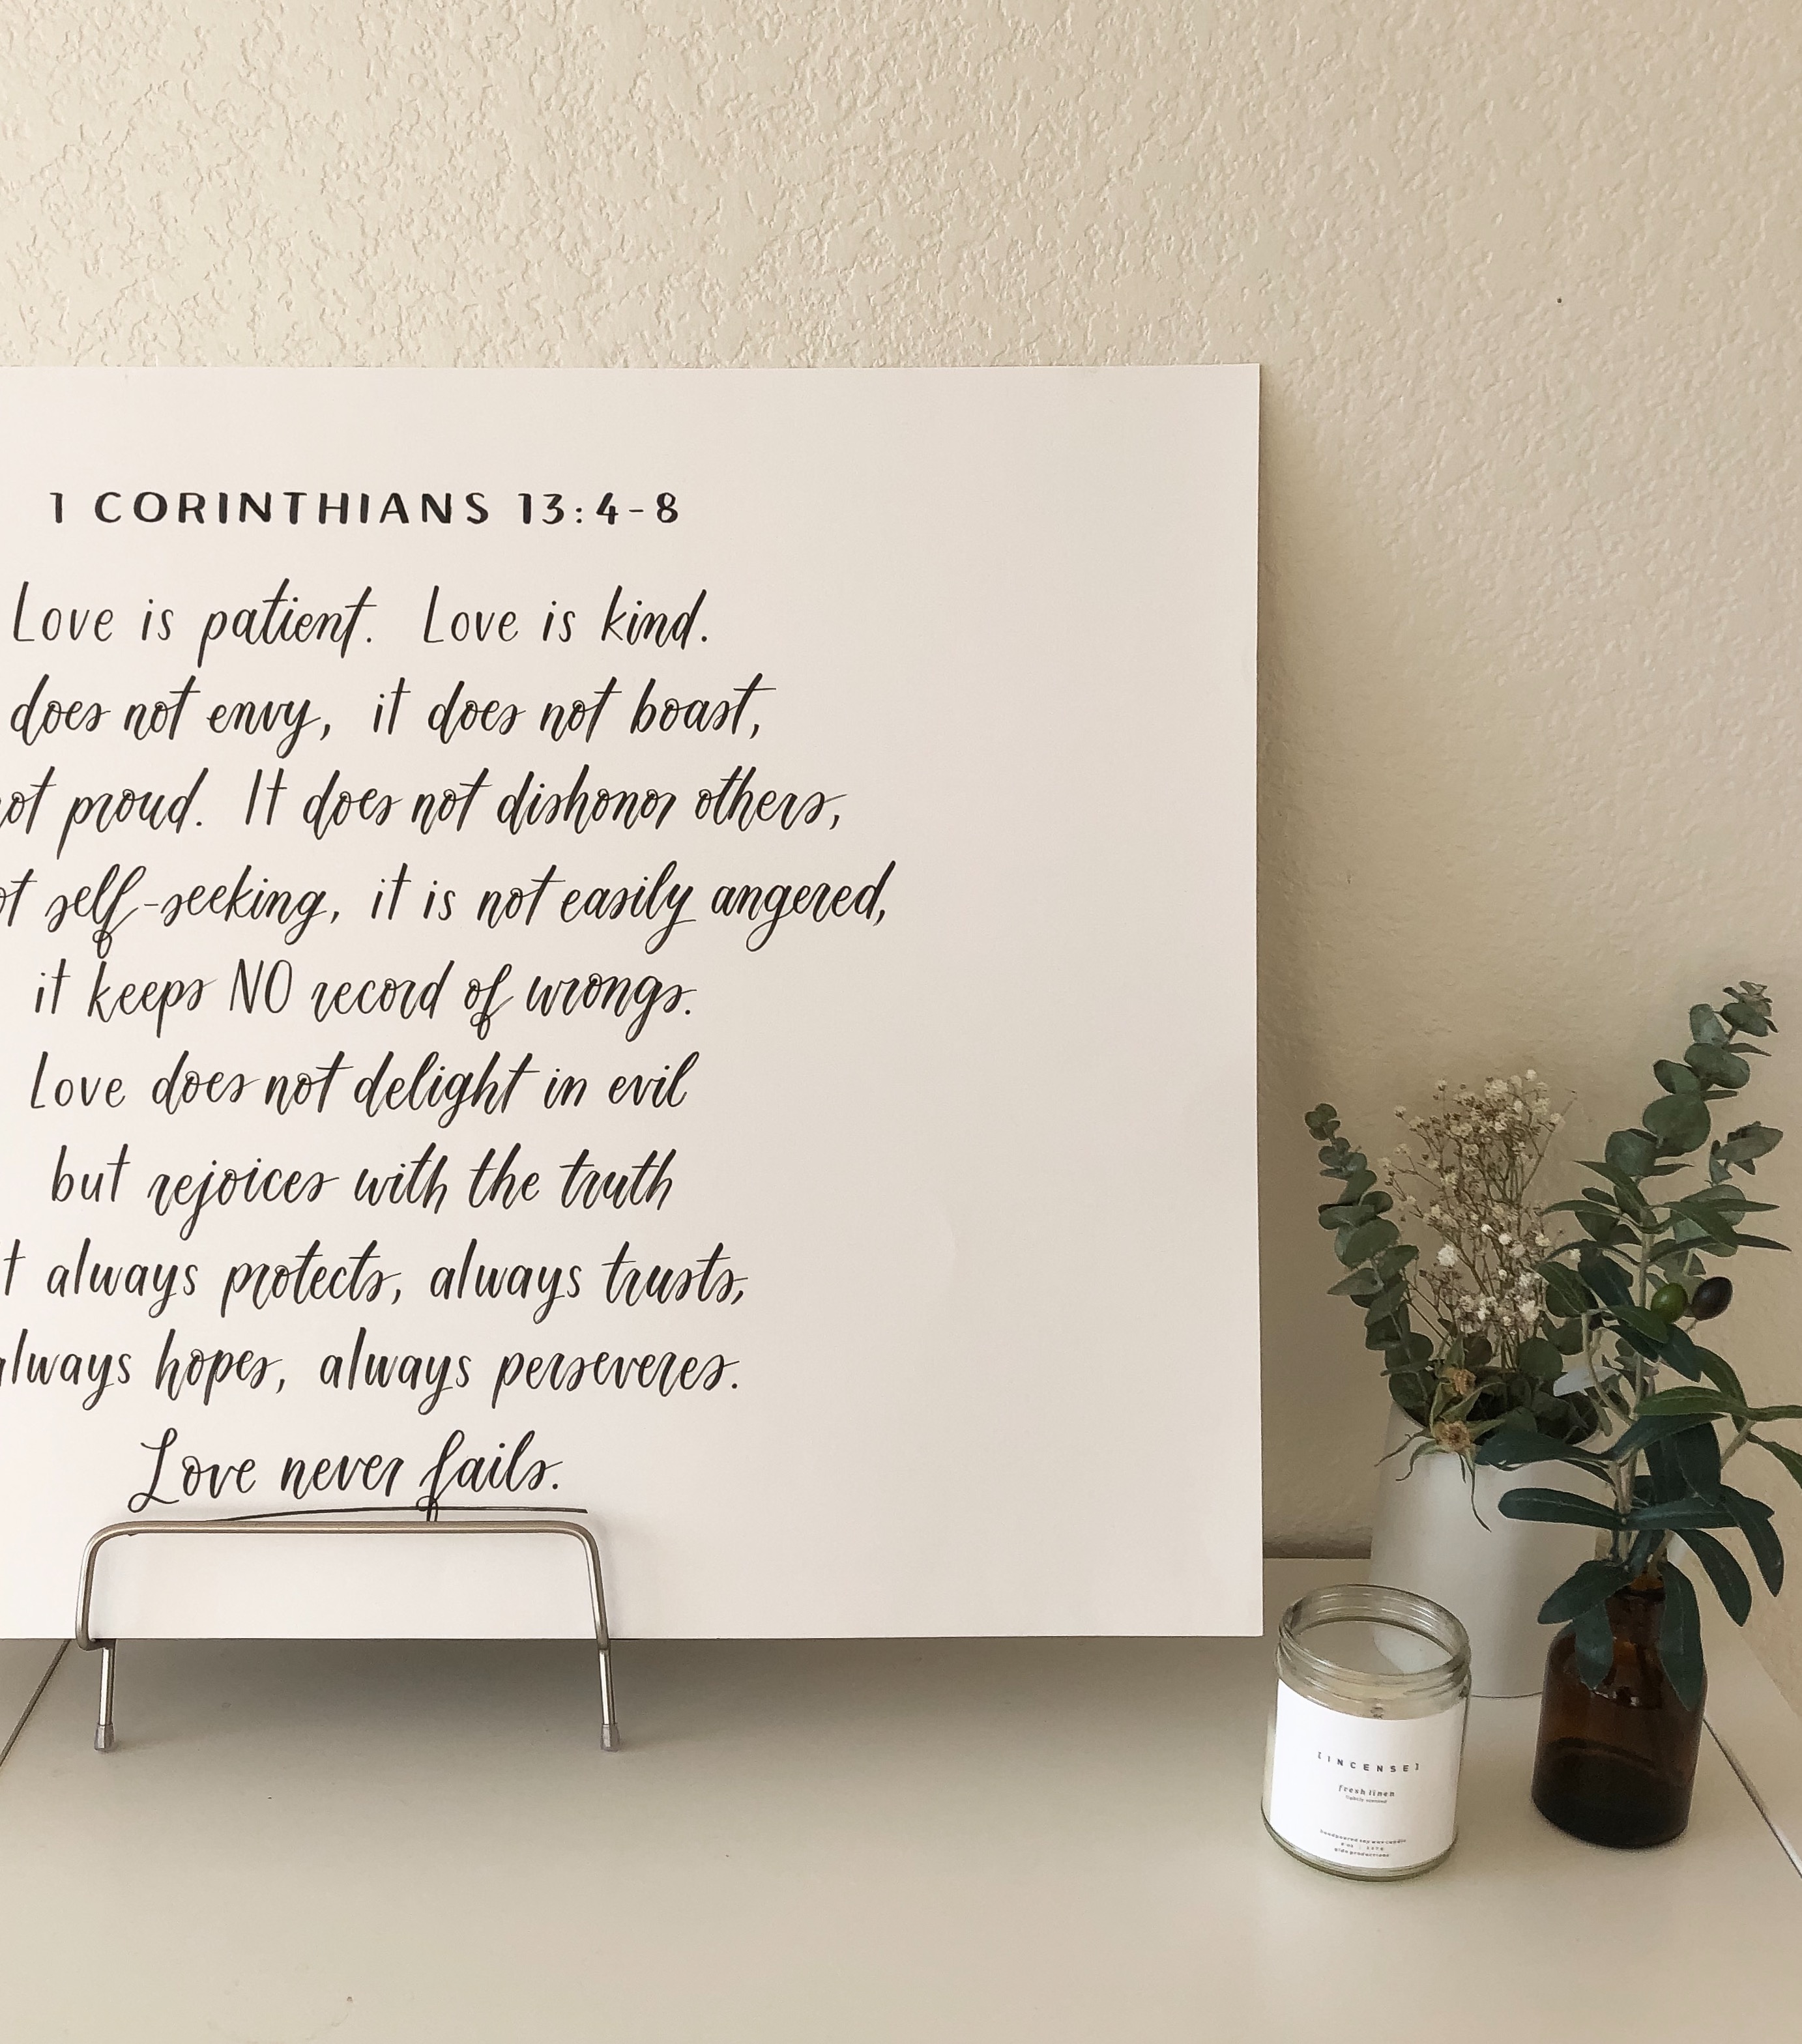 1 CORINTHIANS 13:4-8
Love is patient. Love is kind.
does not envy, it does not boast,
not proud. It does not dishonor others,
self-seeking, it is not easily angered,
it keeps NO record of wrongs.
Love does not delight in evil
but rejoices with the truth
always protects, always trusts,
always hopes, always perseveres.
Love never fails.
[INCENSE]
fresh linen
lightly scented
handpoured soy wax candle